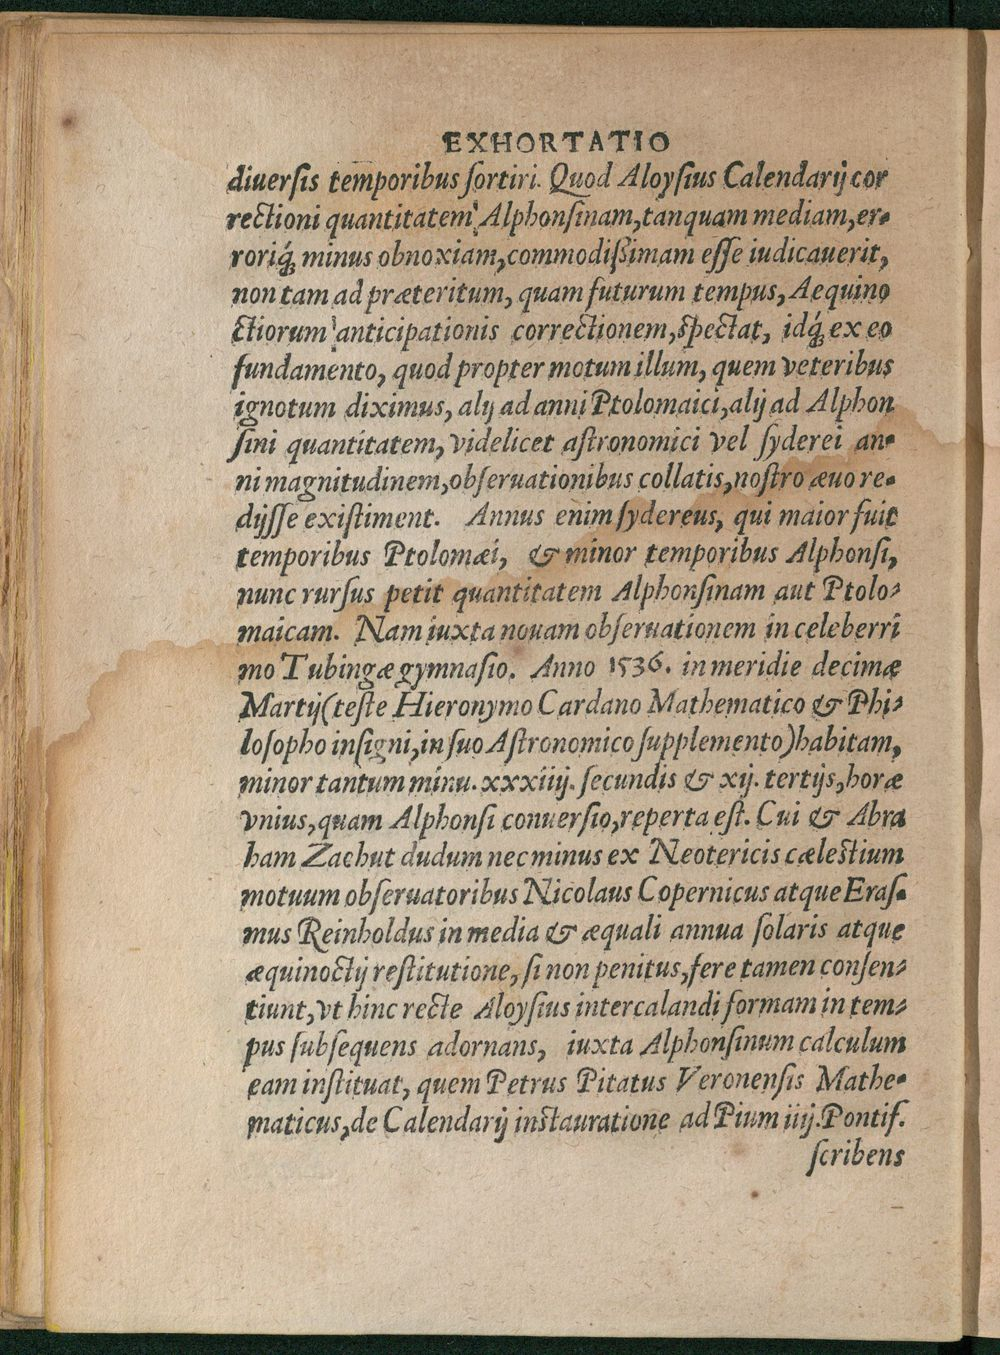 EXHORTATIO
diuerſis temporibus ſortiri. Quod Aloyſius Calendarij cor
rectioni quantitatem Alphonſinam,tanquam mediam,er-
roriq́; minus obnoxiam,commodiſsimam eſſe iudicauerit,
non tam ad præteritum, quam futurum tempus, Aequino
ctiorum anticipationis correctionem,ſpectat, idq́; ex eo
fundamento, quod propter motum illum, quem veteribus
ignotum diximus, alij ad anni Ptolomaici,alij ad Alphon
ſini quantitatem, videlicet aſtronomici vel ſyderei an-
ni magnitudinem,obſeruationibus collatis,noſtro æuo re-
dijſſe exiſtiment. Annus enim ſydereus, qui maior fuit
temporibus Ptolomæi, & minor temporibus Alphonſi,
nunc rurſus petit quantitatem Alphonſinam aut Ptolo-
maicam. Nam iuxta nouam obſeruationem in celeberri
mo Tubingæ gymnaſio. Anno 1536. in meridie decimæ
Martij(teſte Hieronymo Cardano Mathematico & Phi-
loſopho inſigni,in ſuo Aſtronomico ſupplemento)habitam,
minor tantum minu. xxxiiij. ſecundis & xij. tertijs,horæ
vnius,quam Alphonſi conuerſio,reperta eſt. Cui & Abra
ham Zachut dudum nec minus ex Neotericis cæleſtium
motuum obſeruatoribus Nicolaus Copernicus atque Eraſ-
mus Reinholdus in media & æquali annua ſolaris atque
æquinoctij reſtitutione, ſi non penitus,fere tamen conſen-
tiunt,vt hinc recte Aloyſius intercalandi formam in tem-
pus ſubſequens adornans, iuxta Alphonſinum calculum
eam inſtituat, quem Petrus Pitatus Veronenſis Mathe-
maticus,de Calendarij inſtauratione ad Pium iiij.Pontif.
ſcribens